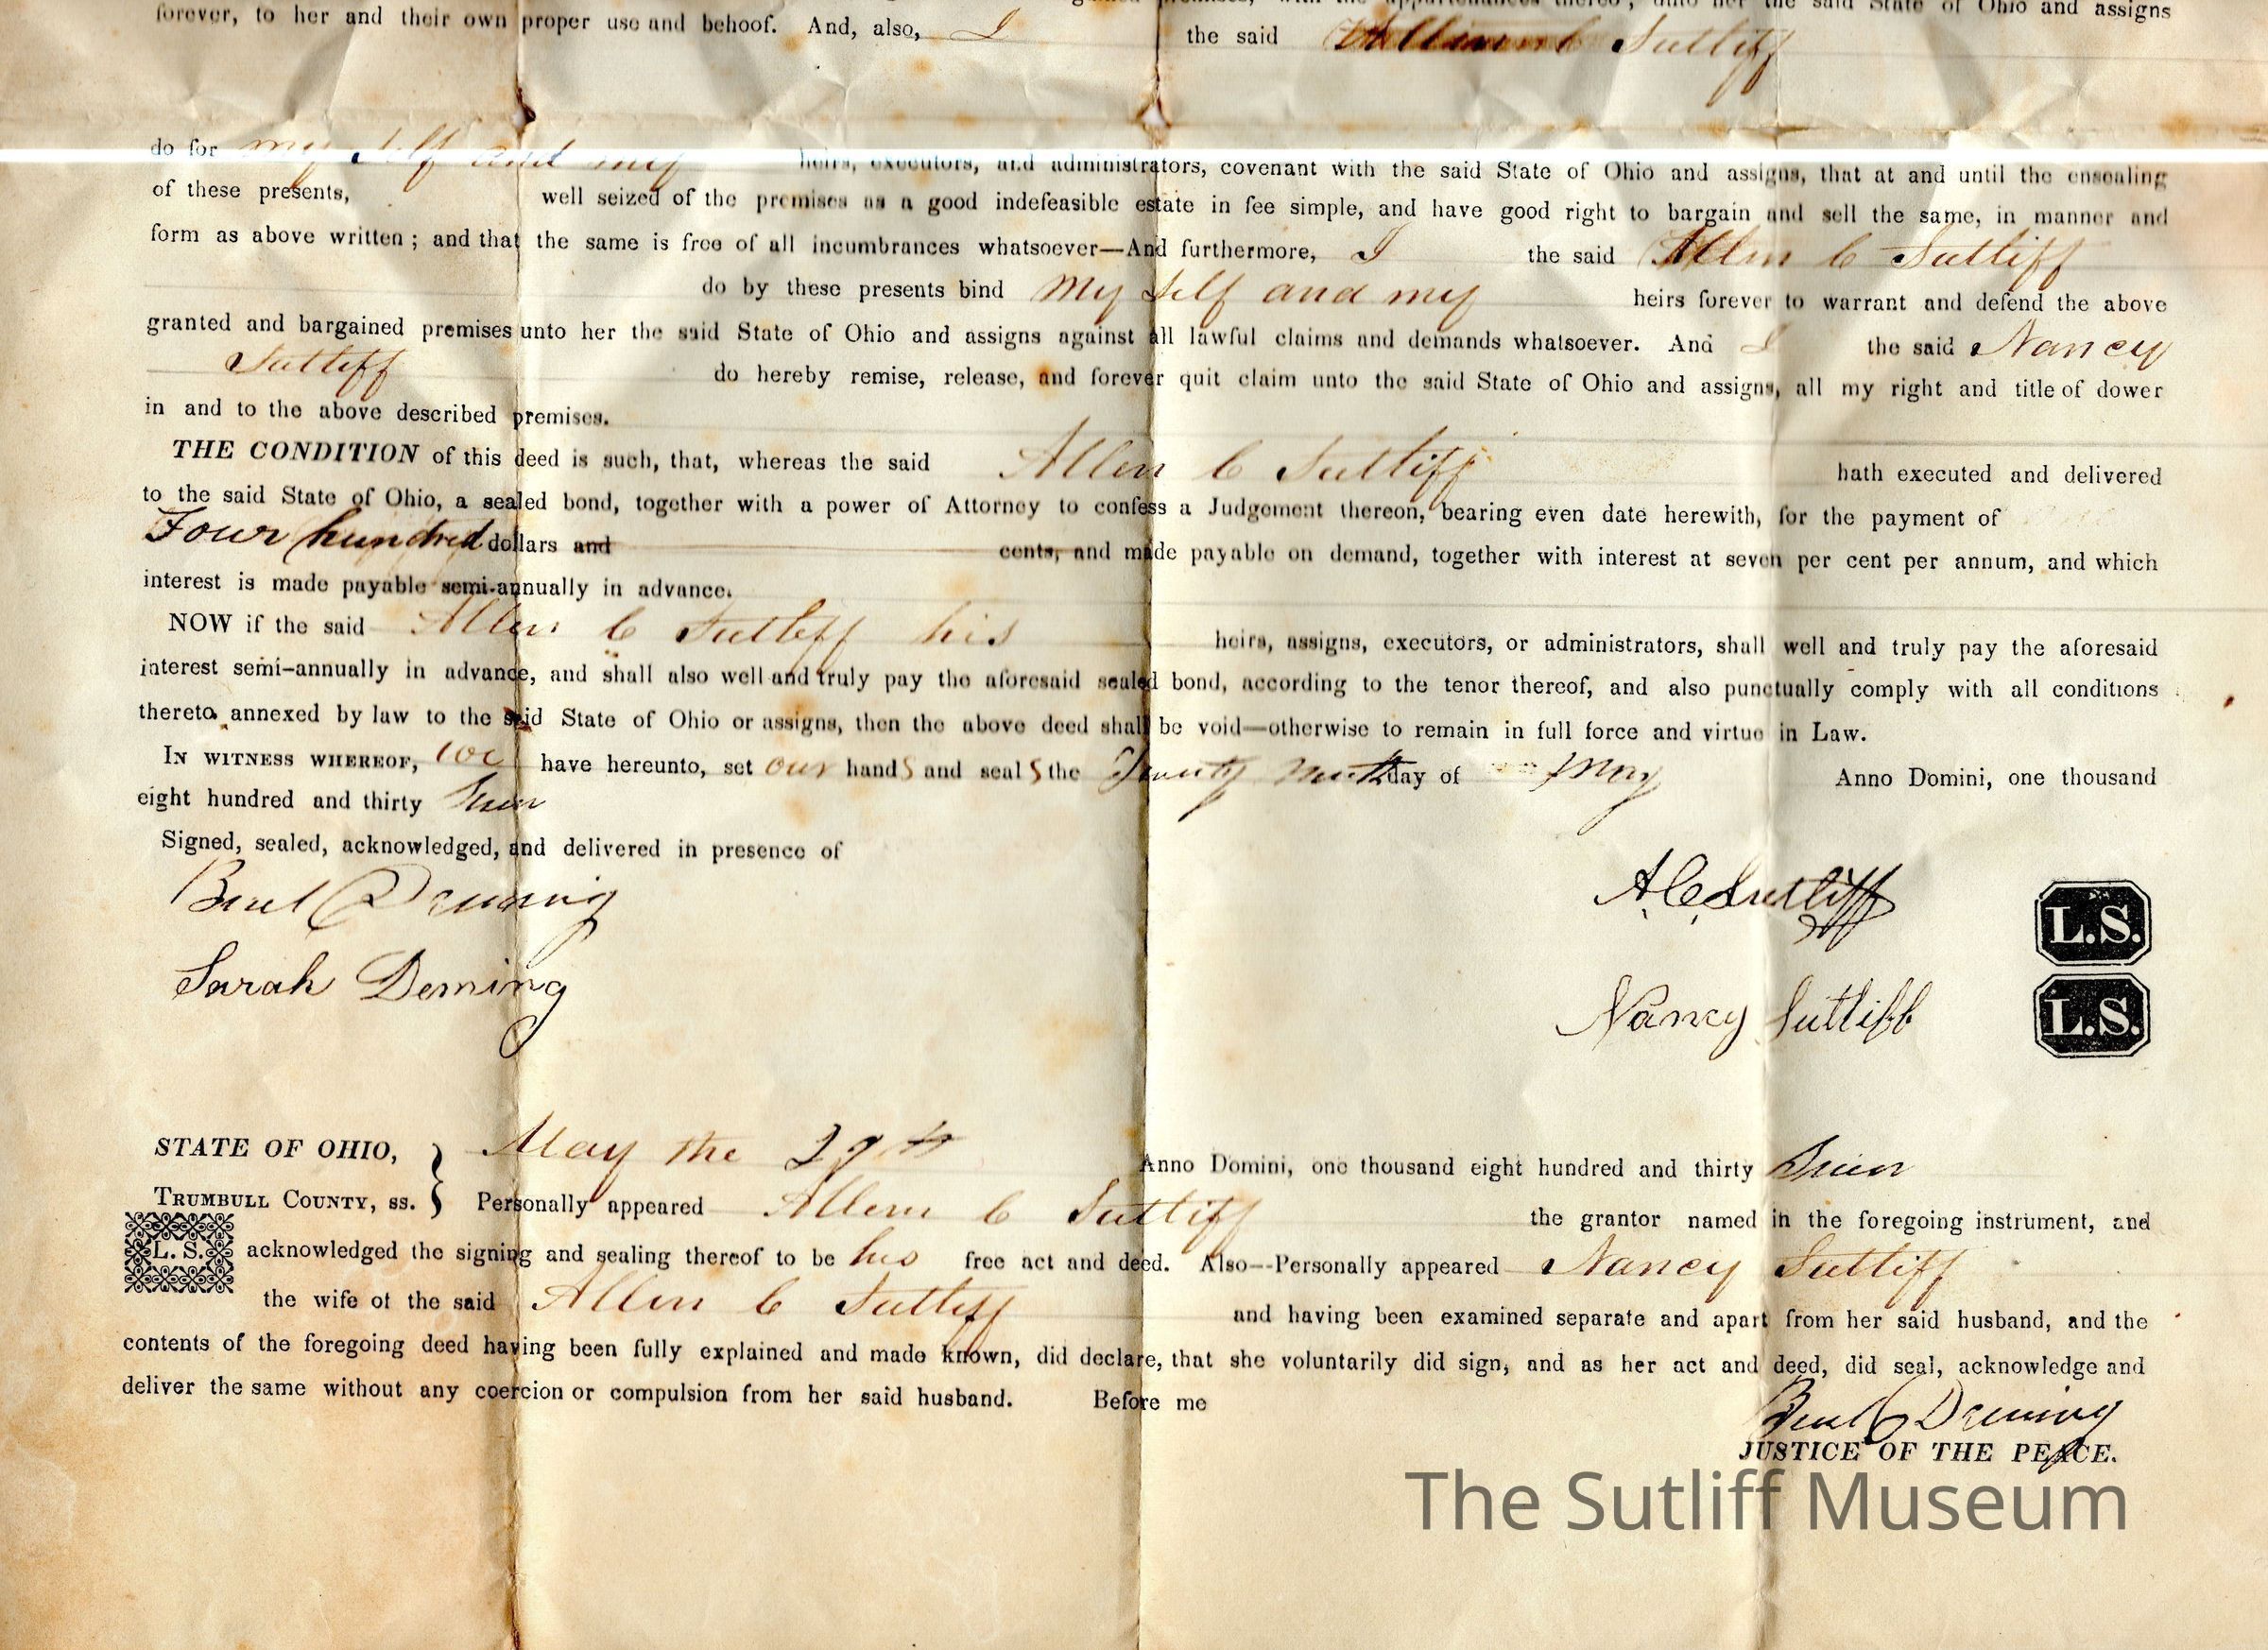 the said State of Ohio and assigns
forever, to her and their own proper use and behoof. And, also, I the said Allen C Sutliff
do for my self and my heirs, executors, and administrators, covenant with the said State of Ohio and assigns, that at and until the ensealing
of these presents, well seized of the premises as a good indefeasible estate in fee simple, and have good right to bargain and sell the same, in manner and
form as above written; and that the same is free of all incumbrances whatsoever—And furthermore, I the said Allen C Sutliff
do by these presents bind my self and my heirs forever to warrant and defend the above
granted and bargained premises unto her the said State of Ohio and assigns against all lawful claims and demands whatsoever. And I the said Nancy
Sutliff do hereby remise, release, and forever quit claim unto the said State of Ohio and assigns, all my right and title of dower
in and to the above described premises.
THE CONDITION of this deed is such, that, whereas the said Allen C Sutliff hath executed and delivered
to the said State of Ohio, a sealed bond, together with a power of Attorney to confess a Judgement thereon, bearing even date herewith, for the payment of
Four hundred dollars and cents, and made payable on demand, together with interest at seven per cent per annum, and which
interest is made payable semi-annually in advance.
NOW if the said Allen C Sutliff his heirs, assigns, executors, or administrators, shall well and truly pay the aforesaid
interest semi-annually in advance, and shall also well and truly pay the aforesaid sealed bond, according to the tenor thereof, and also punctually comply with all conditions
thereto annexed by law to the said State of Ohio or assigns, then the above deed shall be void—otherwise to remain in full force and virtue in Law.
IN WITNESS WHEREOF, we have hereunto, set our hands and seals the Twenty ninth day of May Anno Domini, one thousand
eight hundred and thirty Seven
Signed, sealed, acknowledged, and delivered in presence of
Buel C Deming
A. C. Sutliff L.S.
Sarah Deming
Nancy Sutliff L.S.
STATE OF OHIO, May the 29th Anno Domini, one thousand eight hundred and thirty Seven
TRUMBULL COUNTY, ss. } Personally appeared Allen C Sutliff the grantor named in the foregoing instrument, and
L. S. acknowledged the signing and sealing thereof to be his free act and deed. Also--Personally appeared Nancy Sutliff
the wife of the said Allen C Sutliff and having been examined separate and apart from her said husband, and the
contents of the foregoing deed having been fully explained and made known, did declare, that she voluntarily did sign, and as her act and deed, did seal, acknowledge and
deliver the same without any coercion or compulsion from her said husband. Before me
Buel C Deming
JUSTICE OF THE PEACE.
The Sutliff Museum